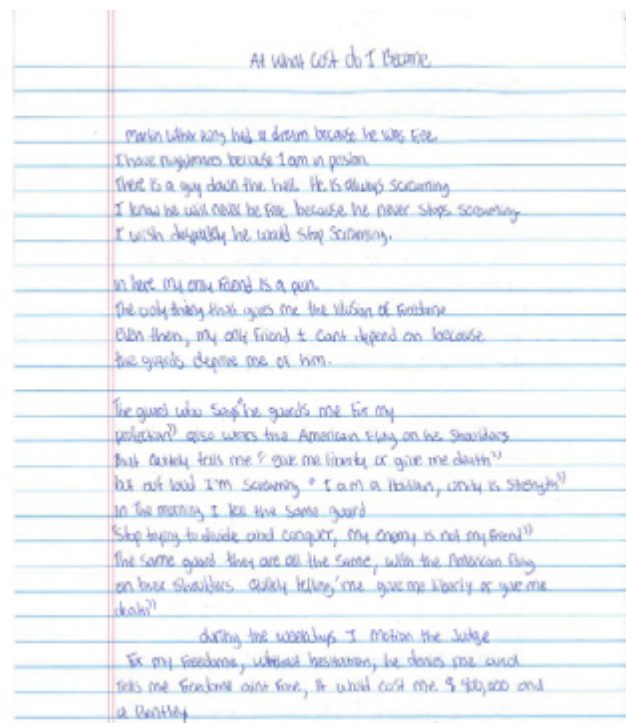 At What Cost do I Become
Martin Luther King had a dream because he was Free.
I have nightmares because I am in prison
There is a guy down the hall. He is always screaming
I know he will never be Free because he never stops screaming
I wish desperately he would stop screaming.
in here my only Friend is a pen.
The only thing that gives me the illusion of Freedome
even then, my only Friend I cant depend on because
the guards deprive me of him.
The guard who says "he guards me For my
protection" also wears the American Flag on his shoulders
that quitely tells me "give me liberty or give me death"
but out loud I'm screaming "I am a Haitian, unity is strength"
In the morning I tell the same guard
"Stop trying to divide and conquer, my enemy is not my Friend"
The same guard they are all the same, with the American Flag
on their shoulders quitely telling me "give me liberty or give me
death"
during the weekdays I motion the Judge
For my Freedome, without hesitation, he denies me and
tells me Freedome aint Free, it would cost me $ 400,000 and
a Bentley